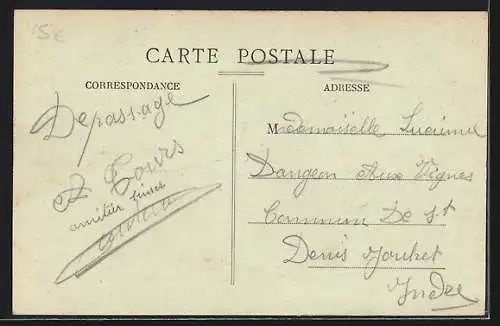 15€
CARTE POSTALE
CORRESPONDANCE
ADRESSE
Depassage
A Tours
amitier
Mademoiselle Lucienne
Dangeon Aux Vignes
Commun De St
Denis Jouhet
Indre